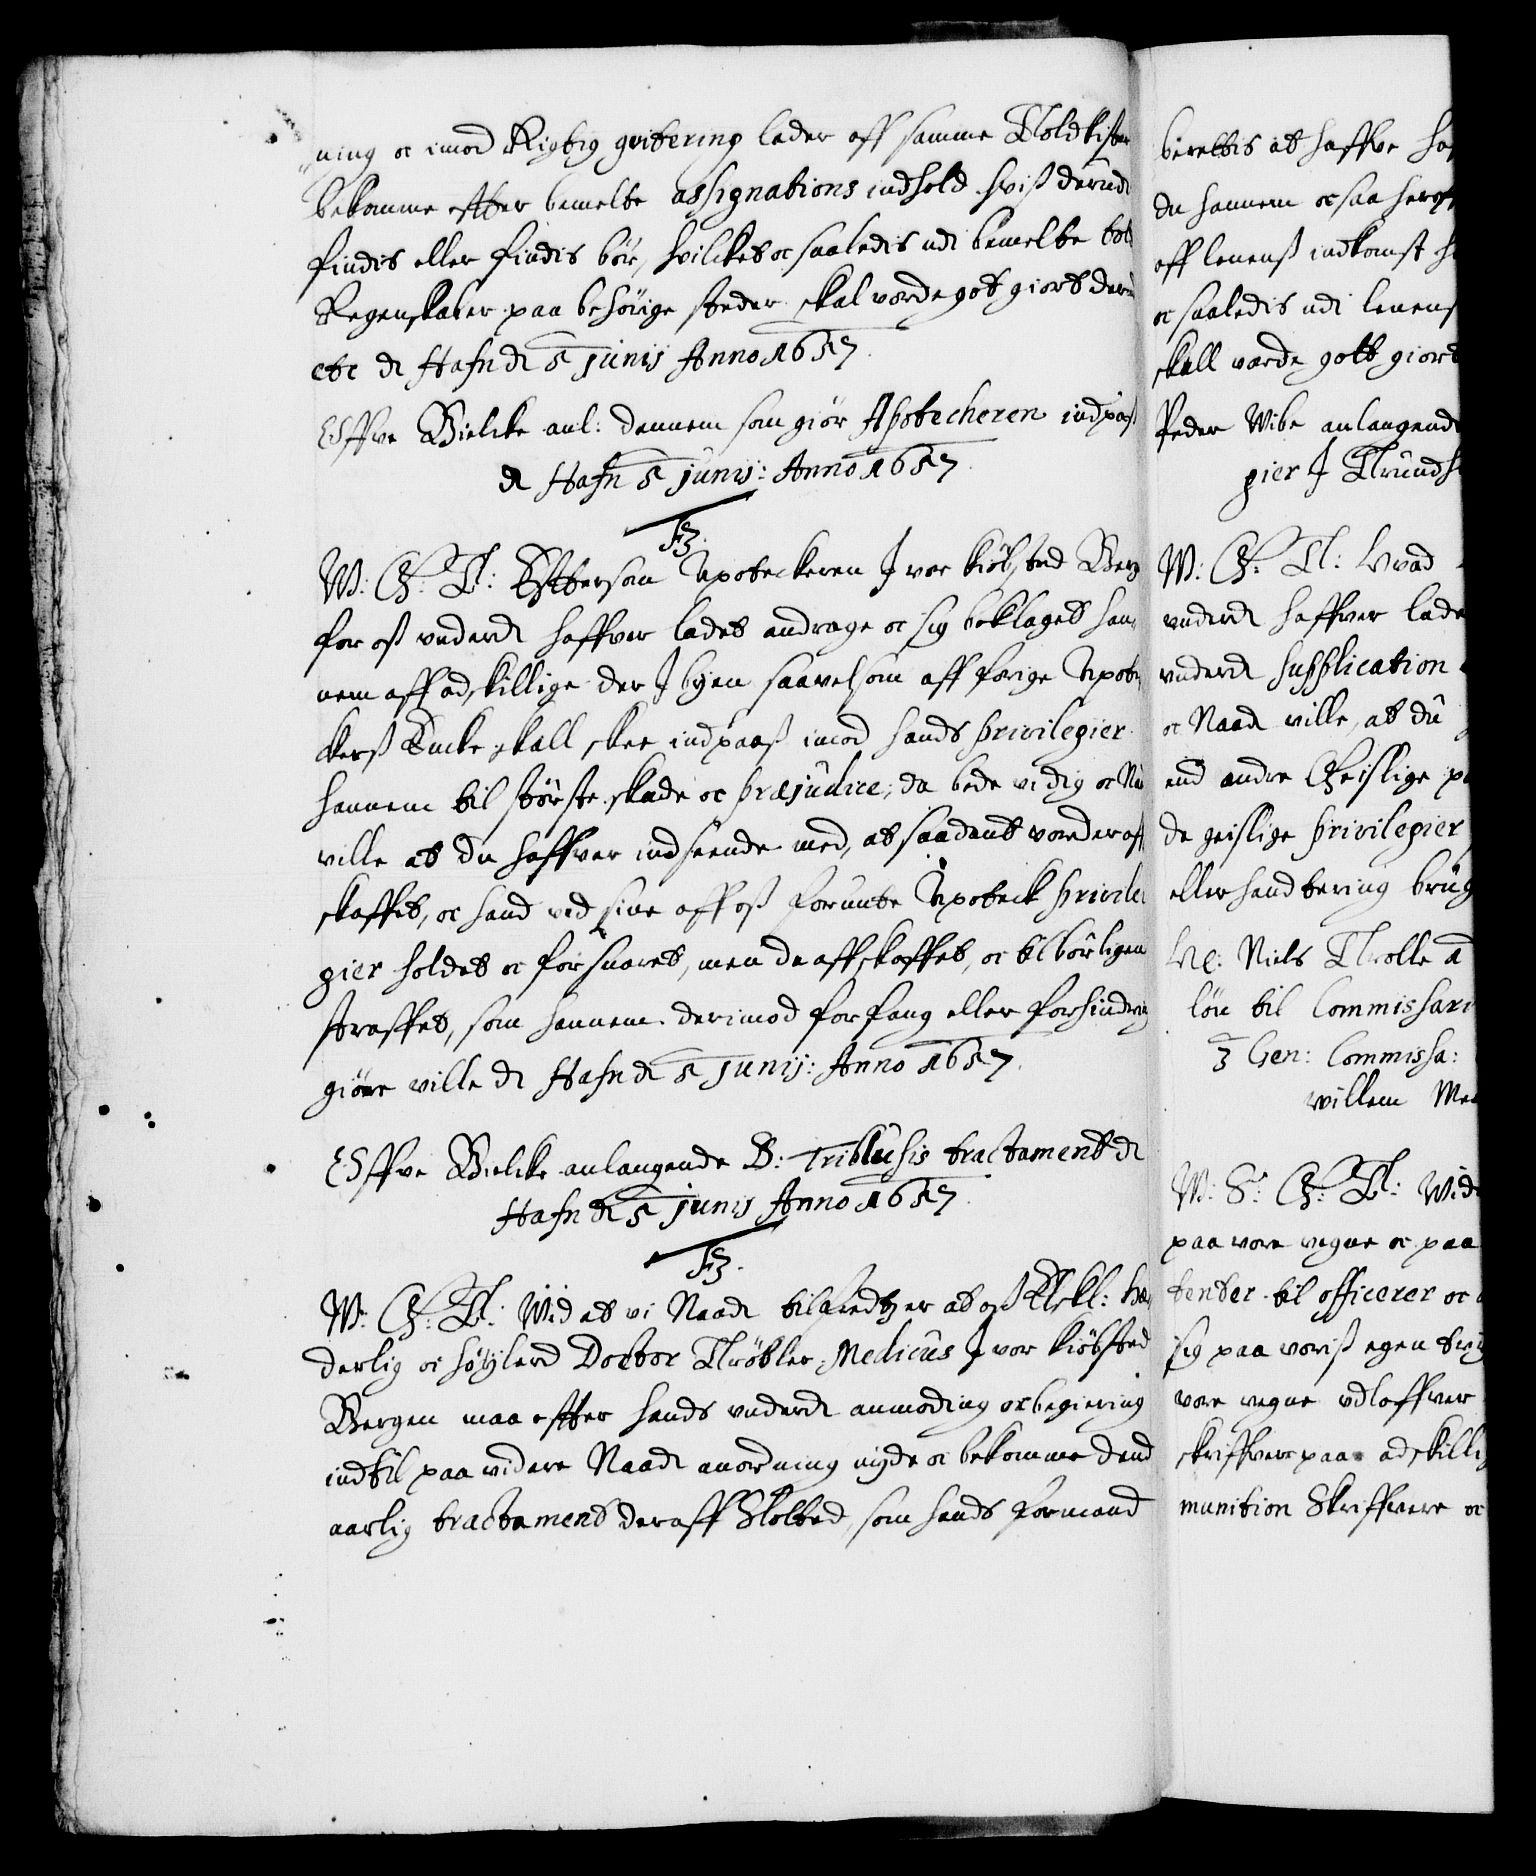 ning oc imod Rigtig qvitering lader aff samme Toldkister
bekomme effter bemelte assignations indhold, hviß derudi
findis eller findis bör, hvilcket oc saaledis udi bemelte told
Regenskaber paa behörige steder skal vorde got giort
etc dt Hafn dt 5 Junij Anno 1657.
Offve Bielcke anl: dennem som giör Apothecheren indpaß
dt Hafn 5 Junij: Anno 1657.
F3.
W: G: T: Effterson Apoteckeren J vor kiöbsted Berg
for oß underd haffver ladet andrage oc sig beklaget han
nem aff adskillige der J byen saavelsom aff forige Apote
kerß Encke skall skee indpaaß imod hands privilegier
hannem til störste skade oc præjudice, da bede vi dig oc Na
ville at du haffver indseende med, at saadant vorder aff
skaffet, oc hand ved sine aff oß forunte Apoteck privile
gier holdet oc forsvaret, men de affskaffet, oc tilbörligen
straffet, som hannem derimod forfang eller forhindring
giöre ville dt Hafn dt 5 Junij: Anno 1657.
Offve Bielcke anlangende D: Triblusis tractament dt
Hafn dt 5 Junij Anno 1657.
F3.
W: G: T: Wid at vi Naadt tilfredtz er at oß Elskl: hæ
derlig oc höylerd Doctor Tröbler, Medicus J vor kiöbsted
Bergen maa effter hands underdt anmoding oc begiering
indtil paa videre Naadt anordning nyde oc bekomme dend
aarlig tractament deraff Slotted, som hands formand
berettis at haffve
du hannem oc saa
aff lenenß indkomst
oc saaledis udi lenens
skall vorde gott giort
Peder Wibe anlangende
gier J Trundh
W: G: T: Hvad
underdt haffver lade
underdt supplication
oc Naadt ville, at du
end andre Geislige
de geislige privilegier
eller handtering brug
Niels Trolle
lön til Commissari
3 Gen: Commissa:
willem
W: S: G: T: Wid
paa vore vegne oc paa
tender til officerer oc
sig paa voriß egen
vore vegne udloffver
skriffvere paa adskilli
munition Skriffvere oc